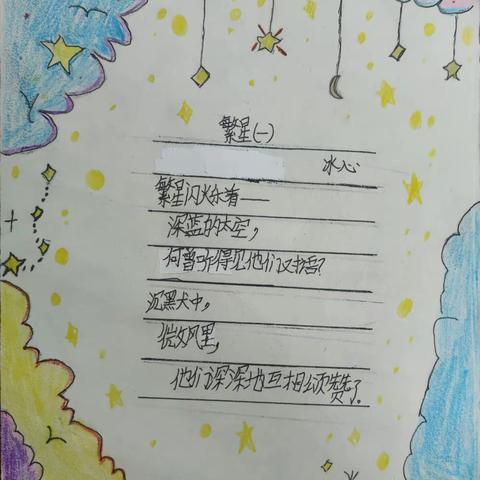 繁星(一)
冰心
繁星闪烁着——
深蓝的太空,
何曾听得见他们对语?
沉默中,
微光里,
他们深深地互相颂赞了.